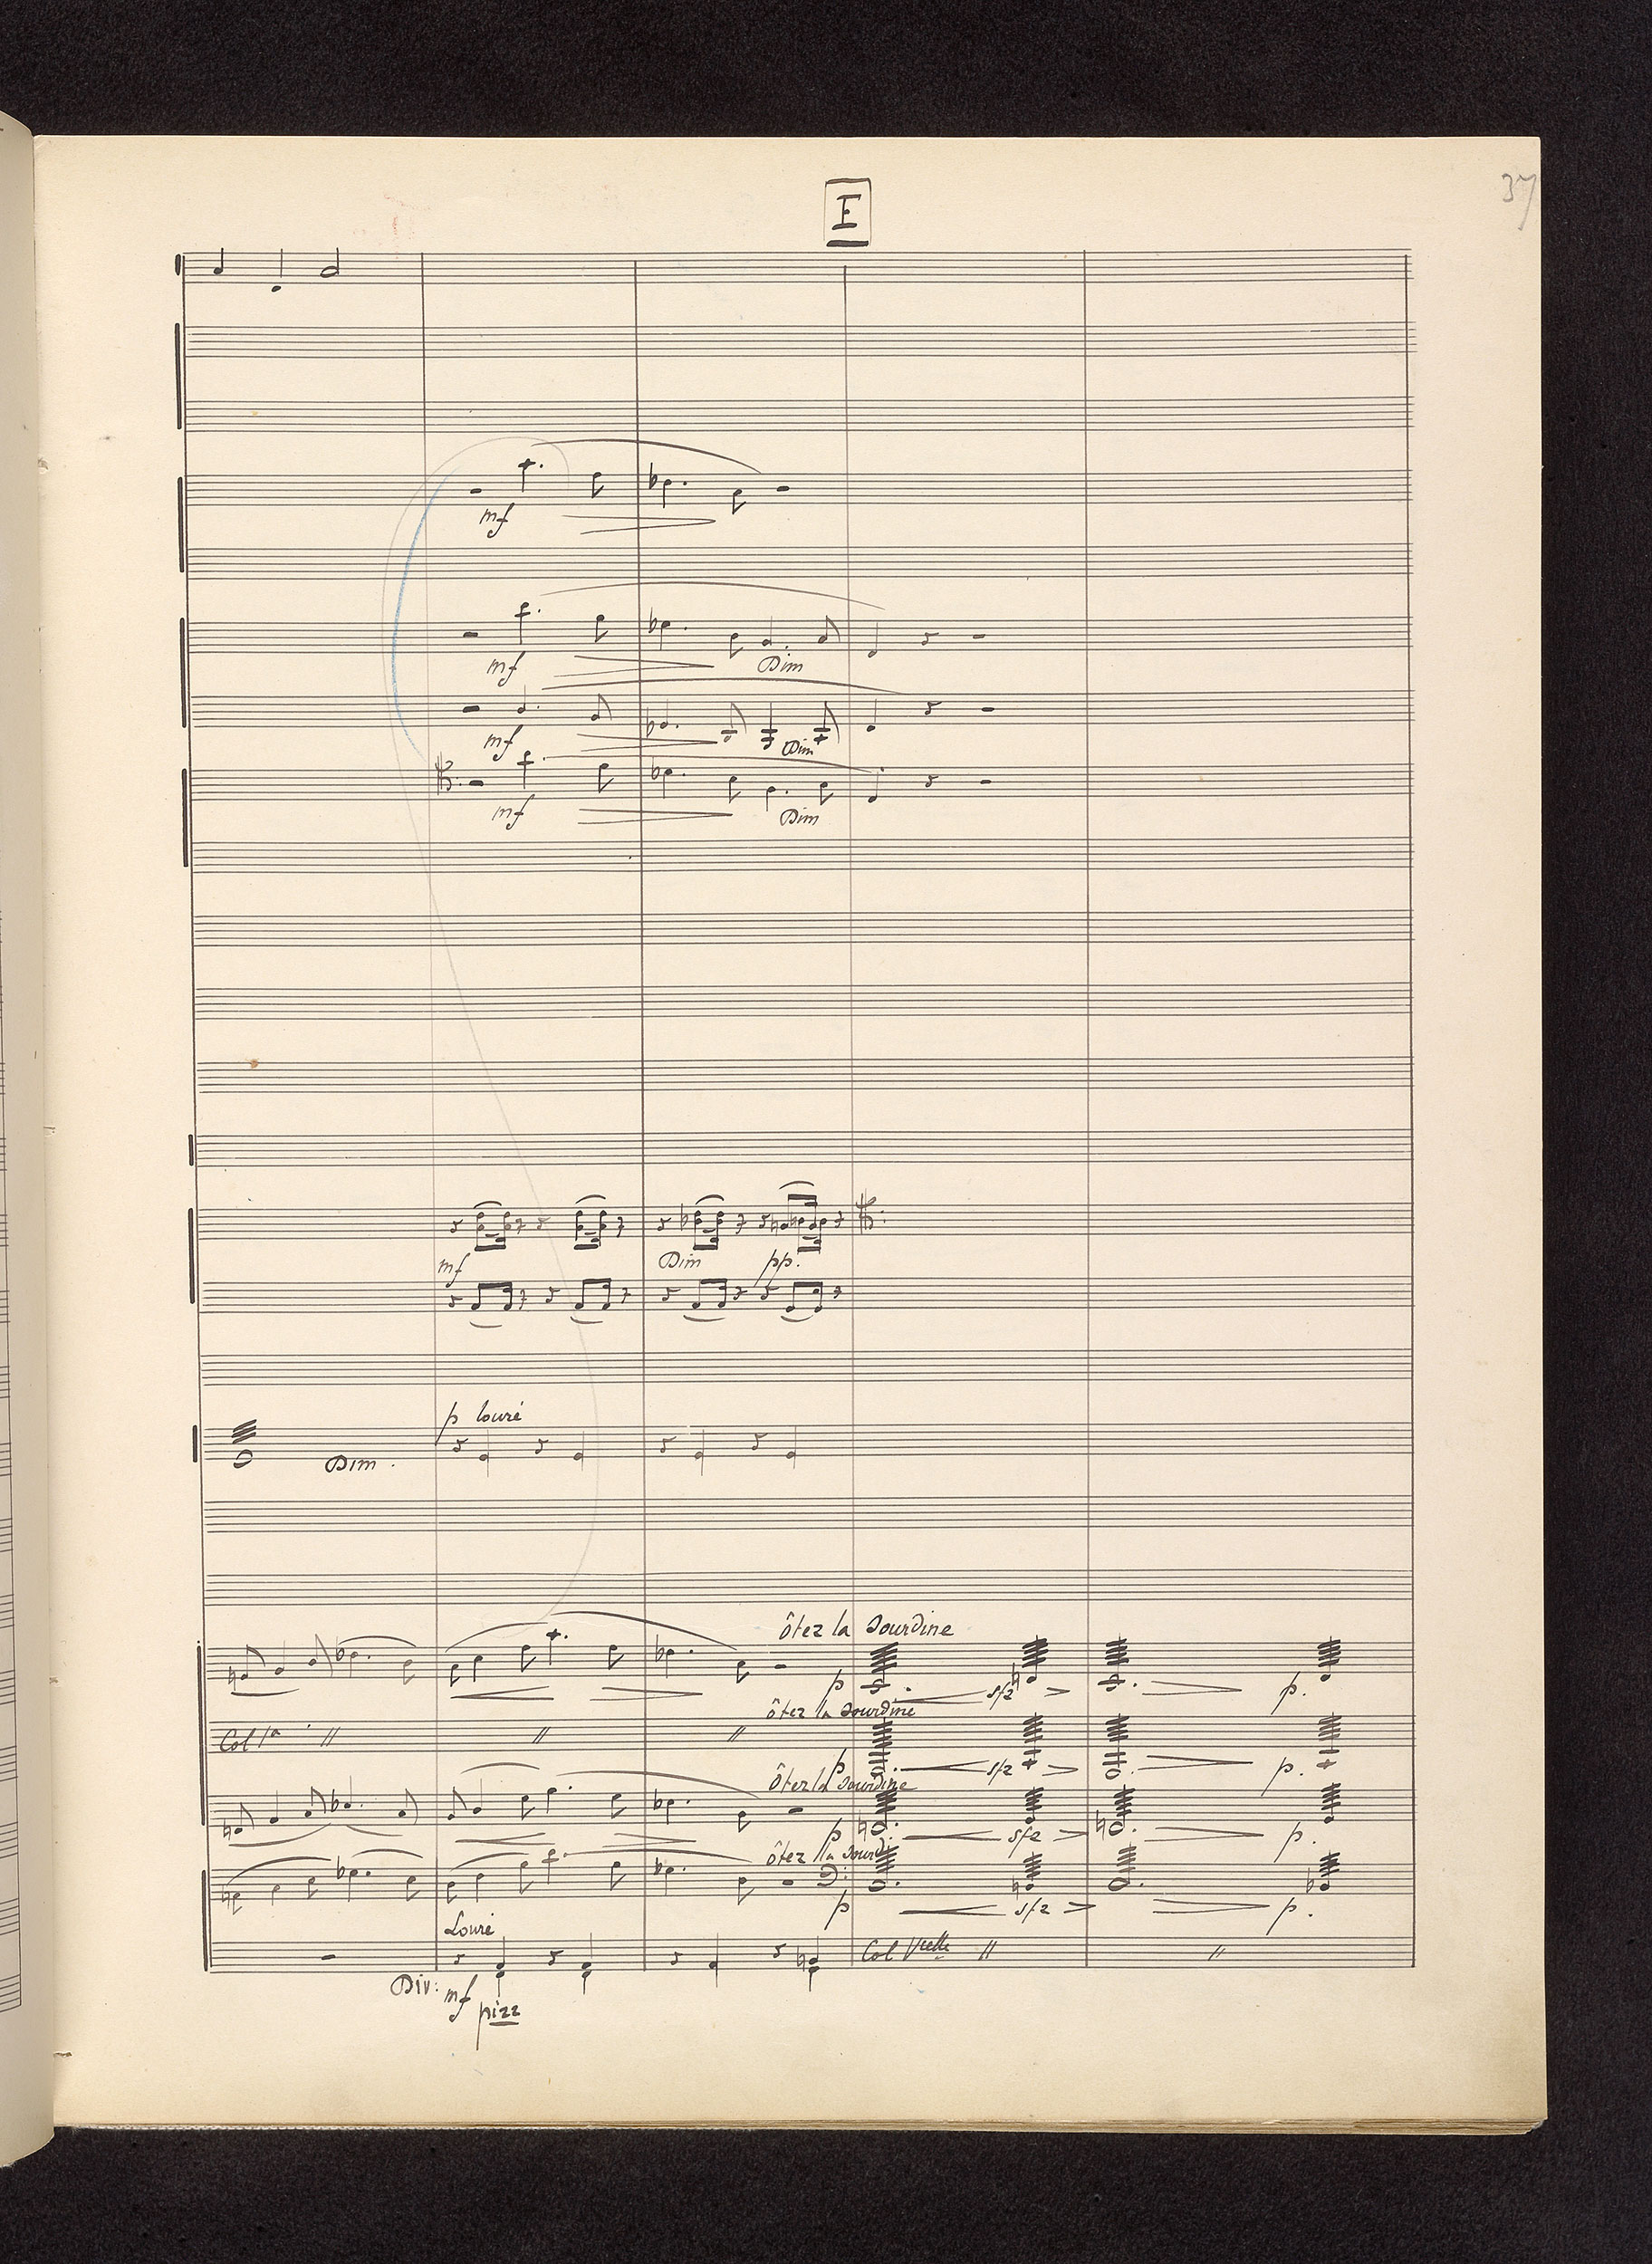 37
E
mf
mf
Dim
mf
Dim
mf
Dim
mf Dim pp.
p louré
Dim.
ôtez la Sourdine
p sfz p.
ôtez la Sourdine
Col 1a // // //
p sfz p.
Ôtez la Sourdine
p sfz p.
ôtez la Sourdi
p sfz p.
Louré
Col Vcelle // //
Div: mf pizz